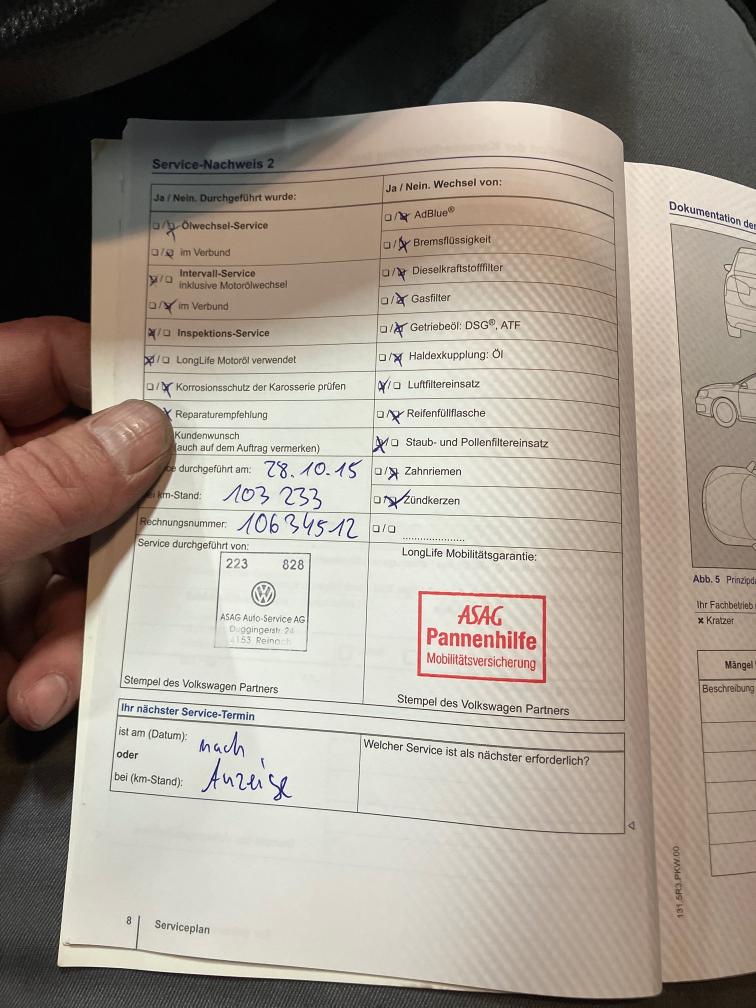 Service-Nachweis 2
Ja / Nein. Durchgeführt wurde:
Ölwechsel-Service
im Verbund
Intervall-Service
inklusive Motorölwechsel
im Verbund
Inspektions-Service
LongLife Motoröl verwendet
Korrosionsschutz der Karosserie prüfen
Reparaturempfehlung
Kundenwunsch
(auch auf dem Auftrag vermerken)
durchgeführt am: 28.10.15
km-Stand: 103 233
Rechnungsnummer: 10634512
Service durchgeführt von:
223 828
ASAG Auto-Service AG
Duggingerstr. 24
4153 Reinach
Stempel des Volkswagen Partners
Ja / Nein. Wechsel von:
AdBlue®
Bremsflüssigkeit
Dieselkraftstofffilter
Gasfilter
Getriebeöl: DSG®, ATF
Haldexkupplung: Öl
Luftfiltereinsatz
Reifenfüllflasche
Staub- und Pollenfiltereinsatz
Zahnriemen
Zündkerzen
LongLife Mobilitätsgarantie:
ASAG
Pannenhilfe
Mobilitätsversicherung
Stempel des Volkswagen Partners
Ihr nächster Service-Termin
ist am (Datum): nach
oder
bei (km-Stand): Anzeige
Welcher Service ist als nächster erforderlich?
8 Serviceplan
Dokumentation der
Abb. 5
Ihr Fachbetrieb
× Kratzer
Mängel
Beschreibung
131.5R3.PKW.00